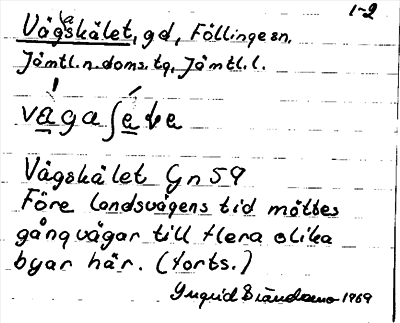 1-2
Vägaskälet, gd, Föllinge sn.
Jämtl.n.doms.tg, Jämtl.l.
vagaʃete
Vägskälet Gn 59
Före landsvägens tid möttes
gångvägar till flera olika
byar här. (forts.)
Yngrid 1969